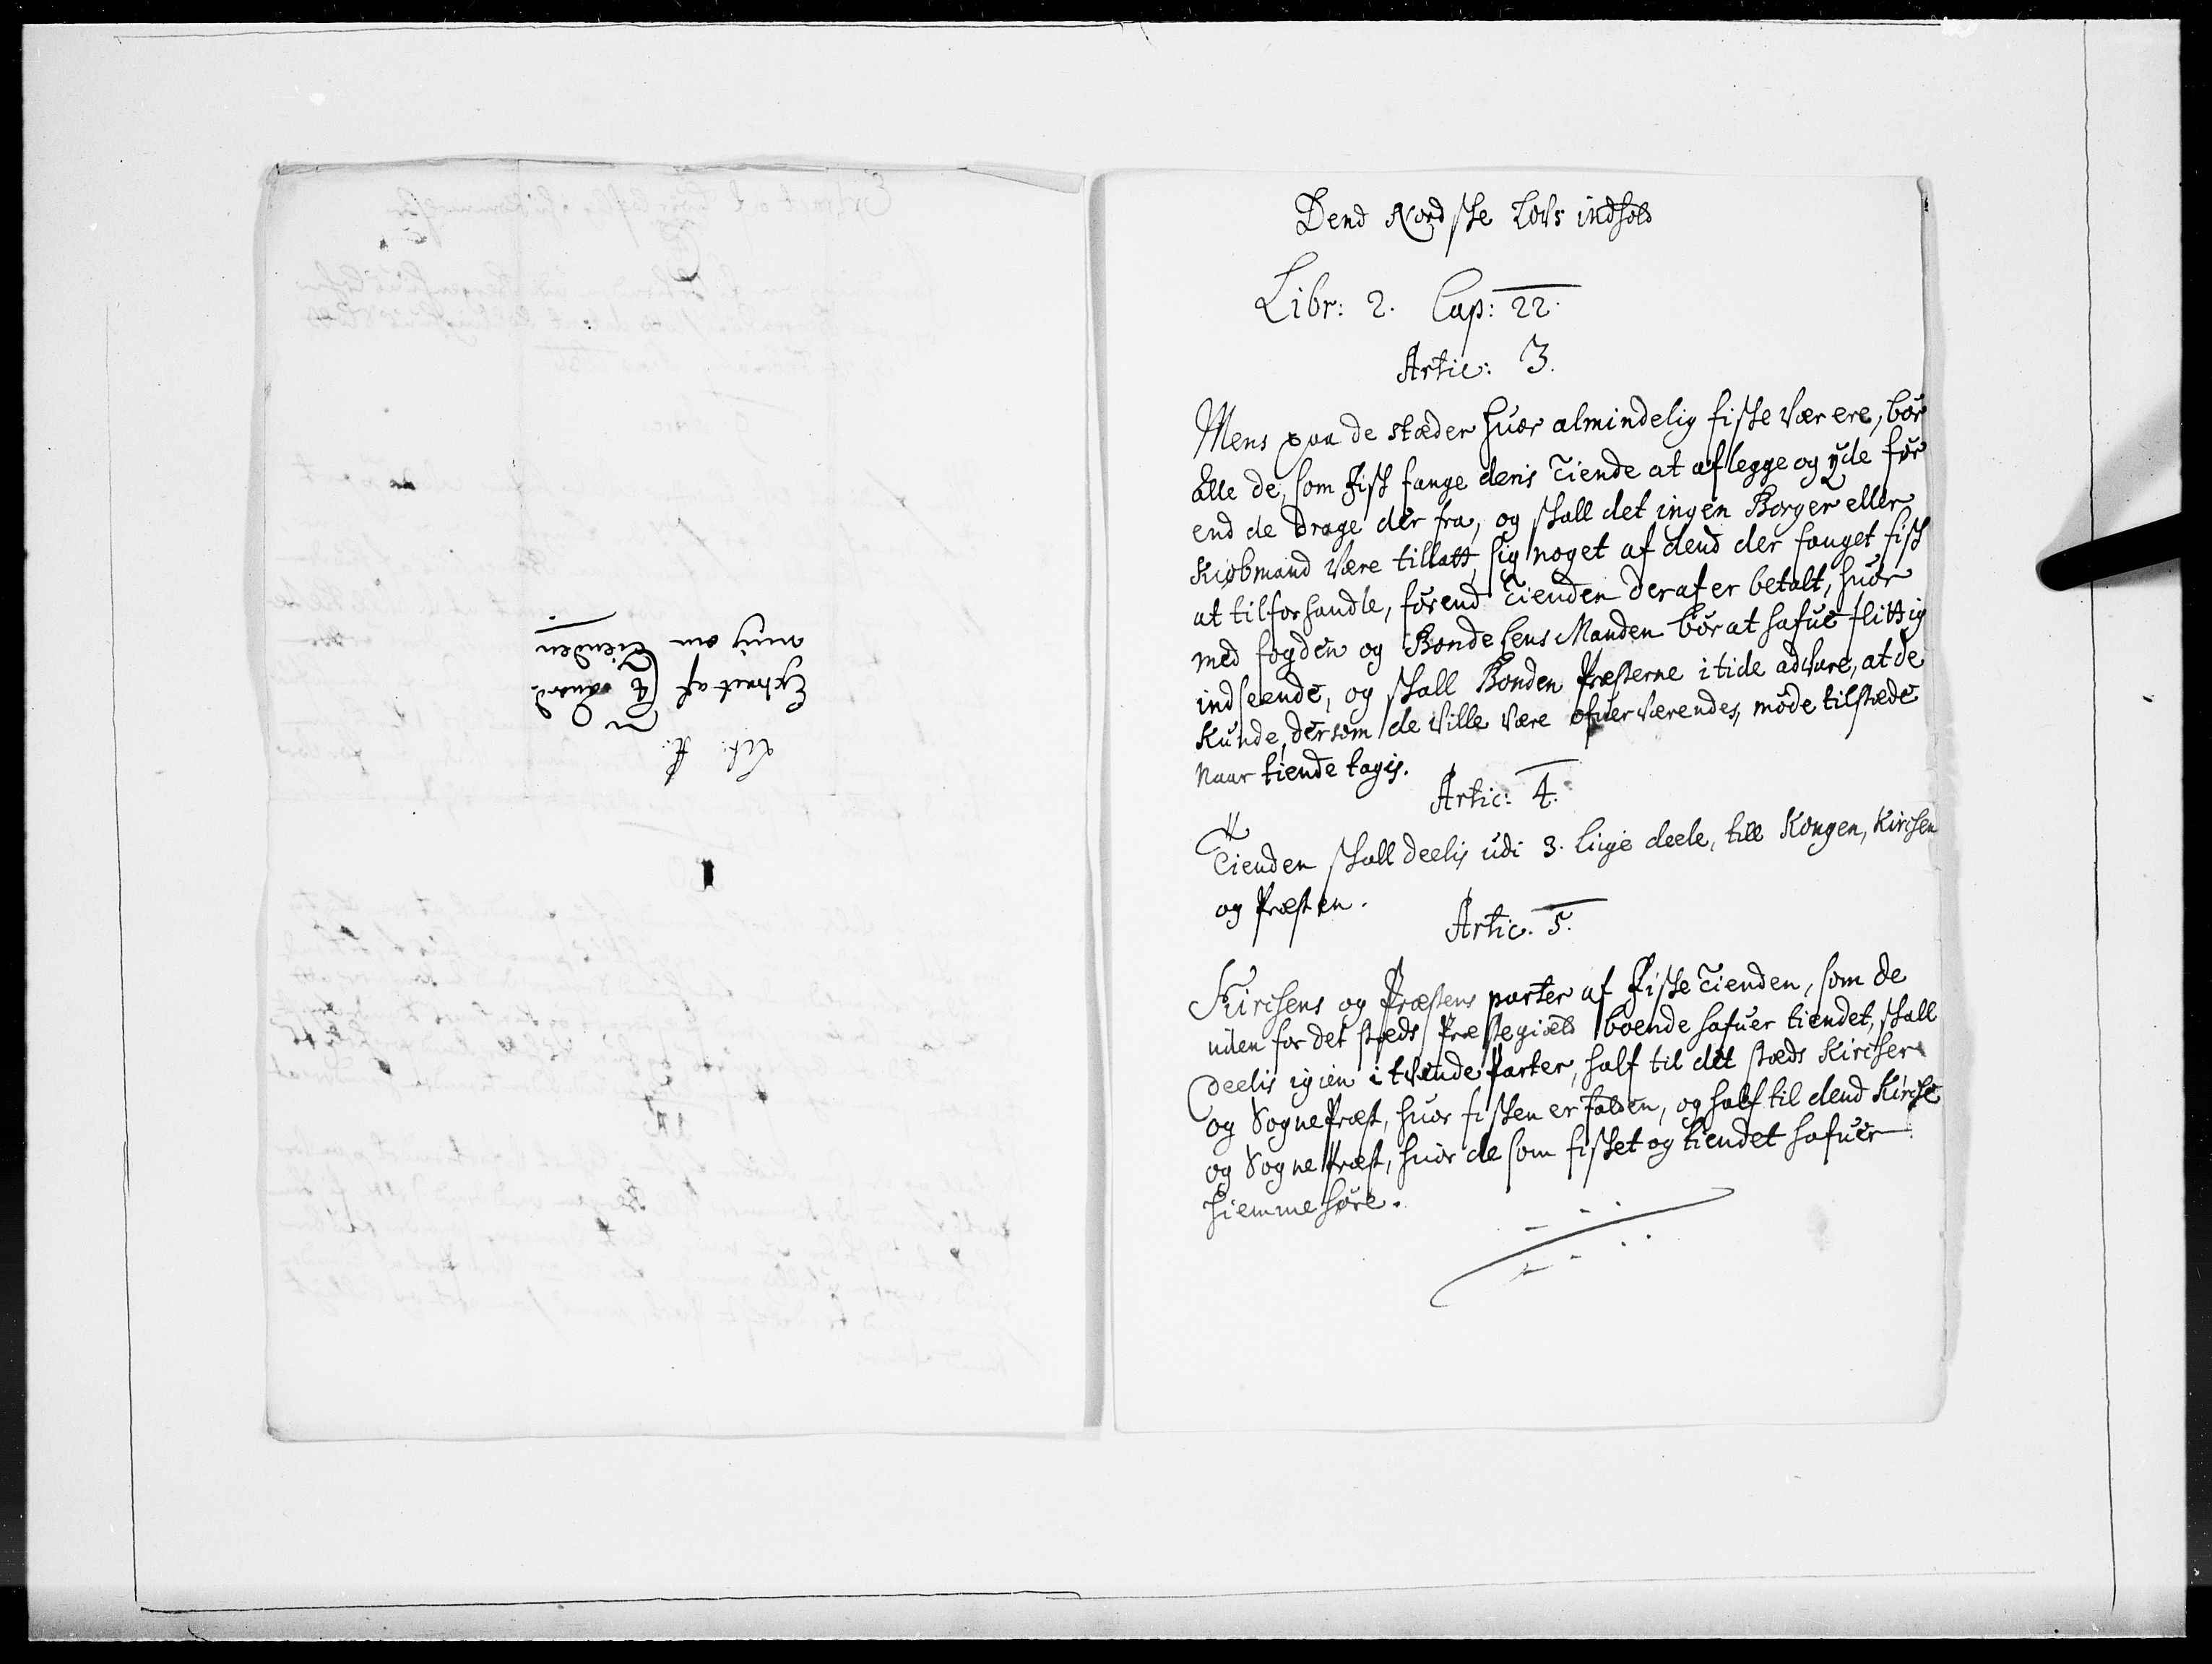 Lit: A.
Extract af
ning om Tienden
Dend Nordske Lovs indhold
Libr: 2. Cap: 22.
Artic: 3.
Mens paa de stæder huor almindelig fiske Vær ere, bør
alle de, som Fisk fange deris Tiende at aflegge og yde før
end de drage der fra, og skall det ingen Borger eller
Kiøbmand Være tilladt, sig noget af dend der fanget fisk
at tilforhandle, førend Tienden deraf er betalt, huor
med fogden og Bonde Lens Manden bør at hafue flittig
indseende, og skall Bonden Præsterne i tide advare, at de
Kunde, dersom de Ville Være ofuerværendes, møde tilstæde
Naar tiende tagis.
Artic: 4.
Tienden skall deelis udi 3. liige deele, till Kongen, Kirchen
og Præsten.
Artic. 5.
Kirchens og Præstens parter af Fiske Tienden, som de
uden for det stæds Præstegield boende hafuer tiendet, skall
deelis igien i tvende Parter, half til det stæds Kircher
og Sogne Præst, huor fisken er falden, og half til dend Kirche
og Sogne Præst, huor de som fisket og tiendet hafuer
hiemme høre.